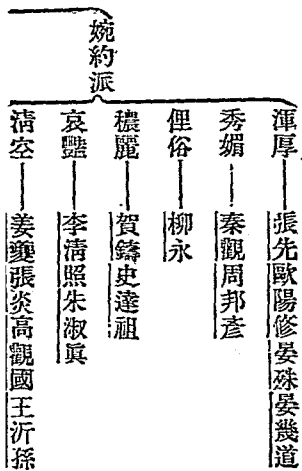 婉約派
渾厚——張先歐陽修晏殊晏幾道
秀媚——秦觀周邦彥
俚俗——柳永
穠麗——賀鑄史達祖
哀豔——李清照朱淑眞
清空——姜夔張炎高觀國王沂孫